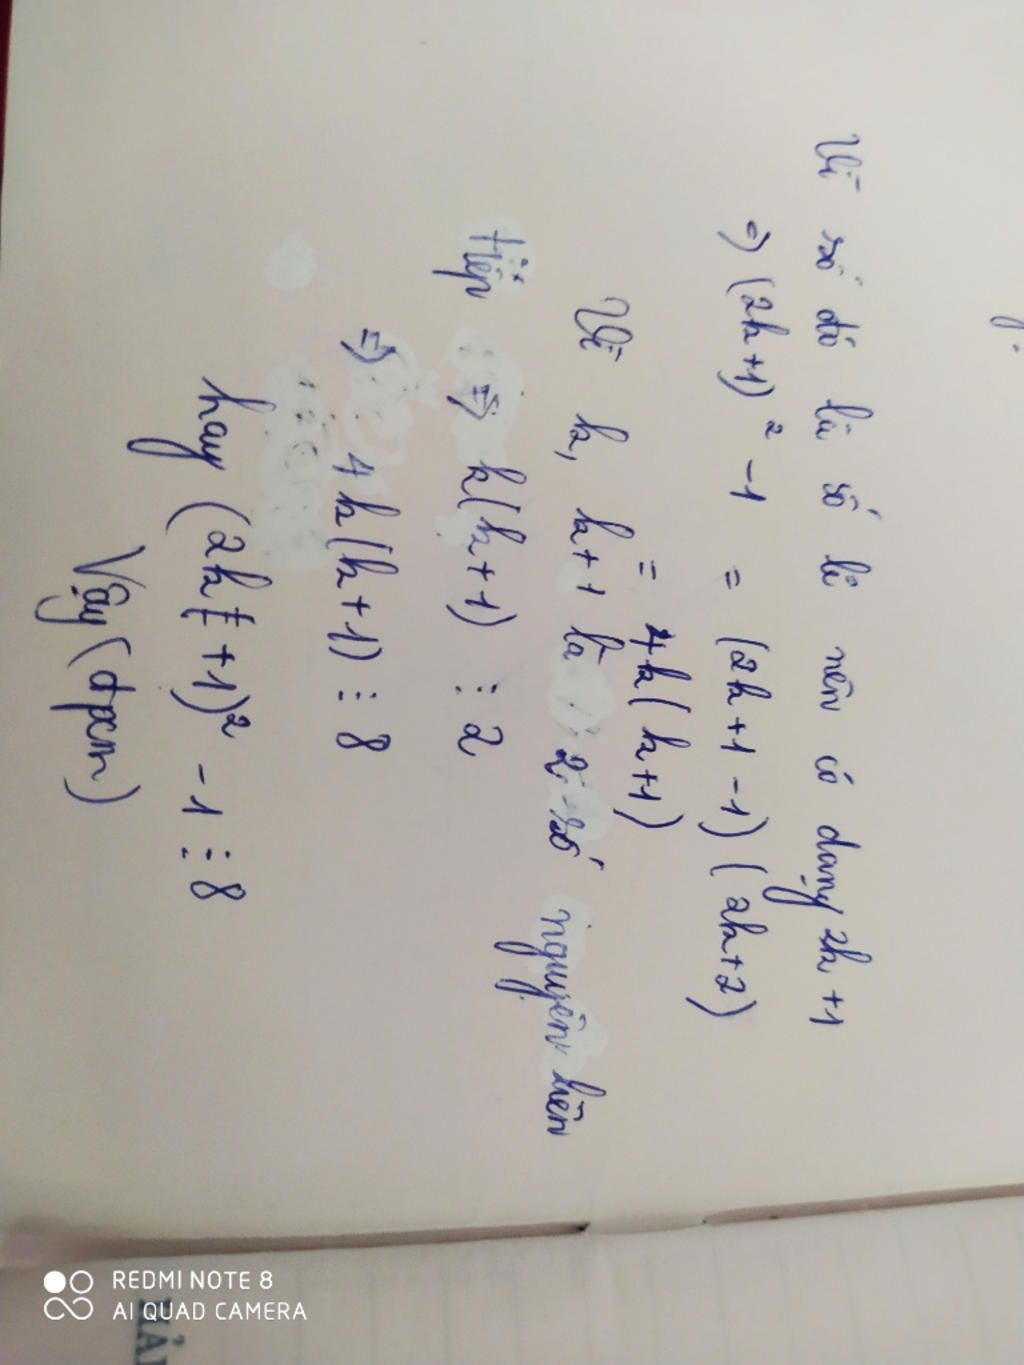 Vì số đó là số lẻ nên có dạng 2k+1
=) (2k+1)² -1 = (2k+1-1)(2k+2)
= 4k(k+1)
Vì k, k+1 là 2 số nguyên liên
tiếp =) k(k+1) ⋮ 2
=) 4k(k+1) ⋮ 8
hay (2k+1)² -1 ⋮ 8
Vậy (đpcm)
REDMI NOTE 8
AI QUAD CAMERA